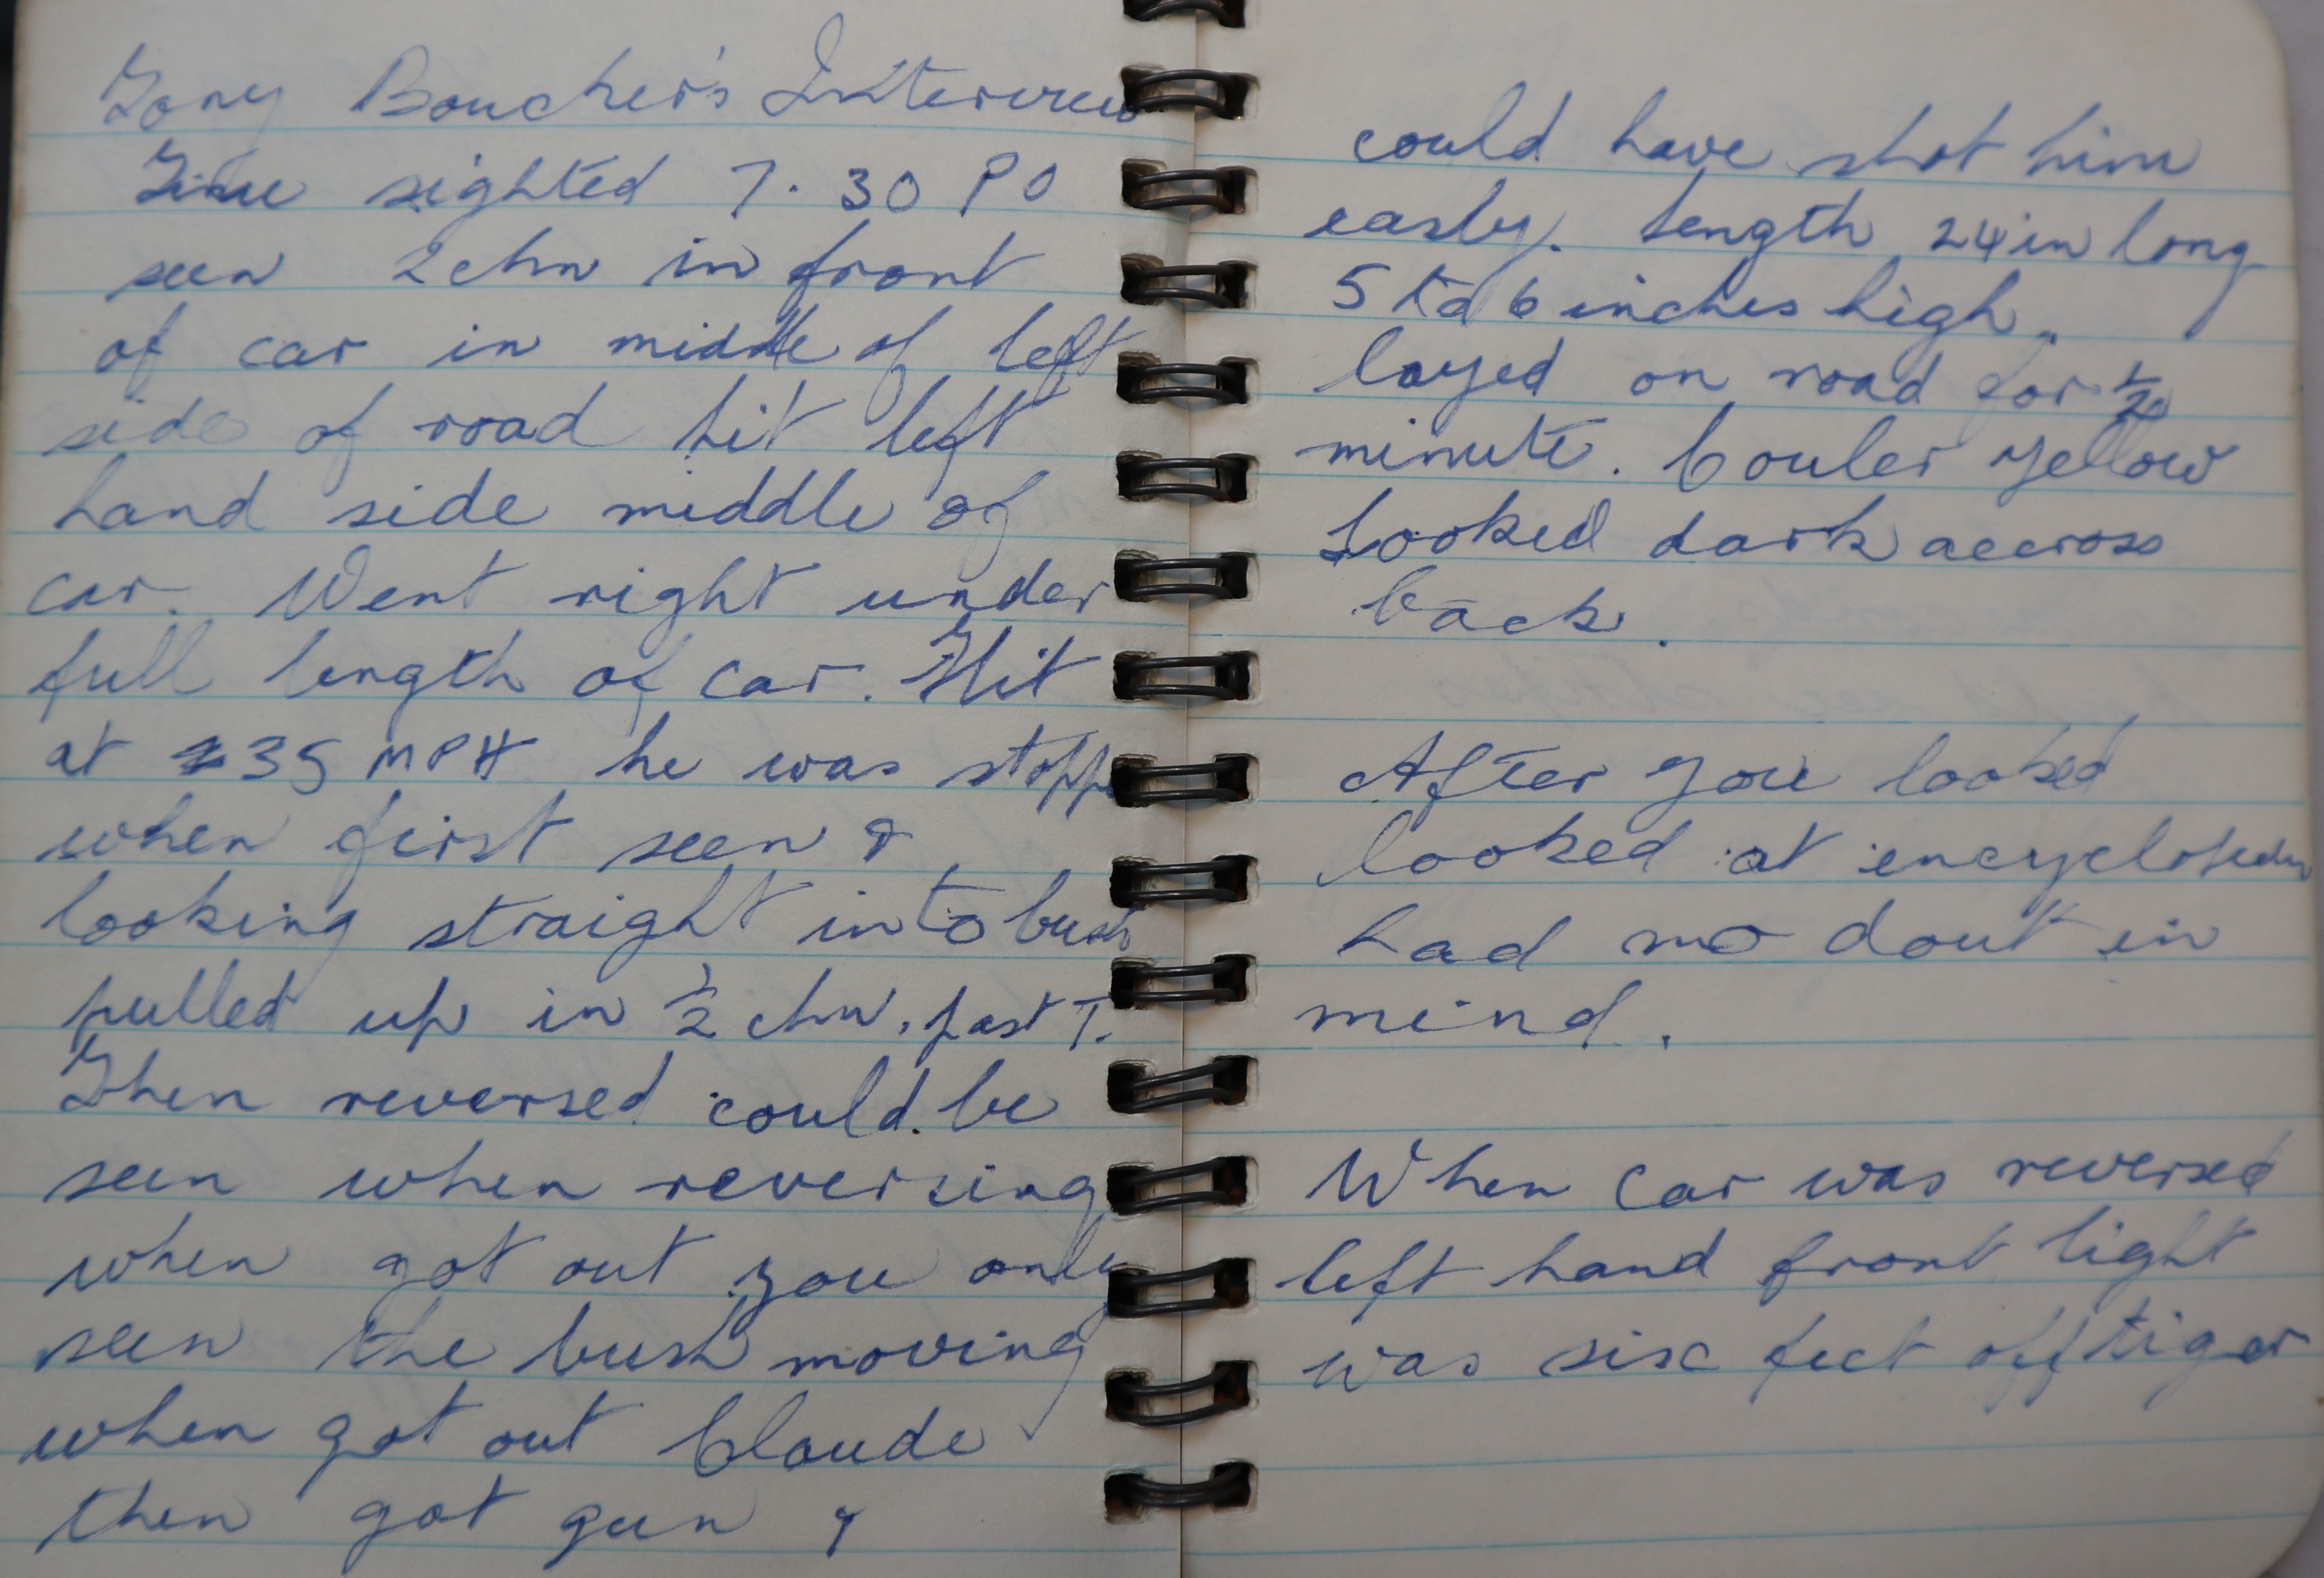 Tony Boucher's Interview
Time sighted 7.30 PO
seen 2 chn in front
of car in middle of left
side of road hit left
hand side middle of
car. Went right under
full length of car. Hit
at 35 MPH he was stopp
when first seen &
looking straight into bush
pulled up in ½ chn. past T.
Then reversed could be
seen when reversing
when got out you only
seen the bush moving
when got out Claude
then got gun &
could have shot him
easly. Length 24 in long
5 to 6 inches high.
layed on road for ½
minute. Couler yellow
Looked dark accross
back.
After you looked
looked at encyclopedia
had no dout in
mind.
When car was reversed
left hand front light
was six feet off tiger